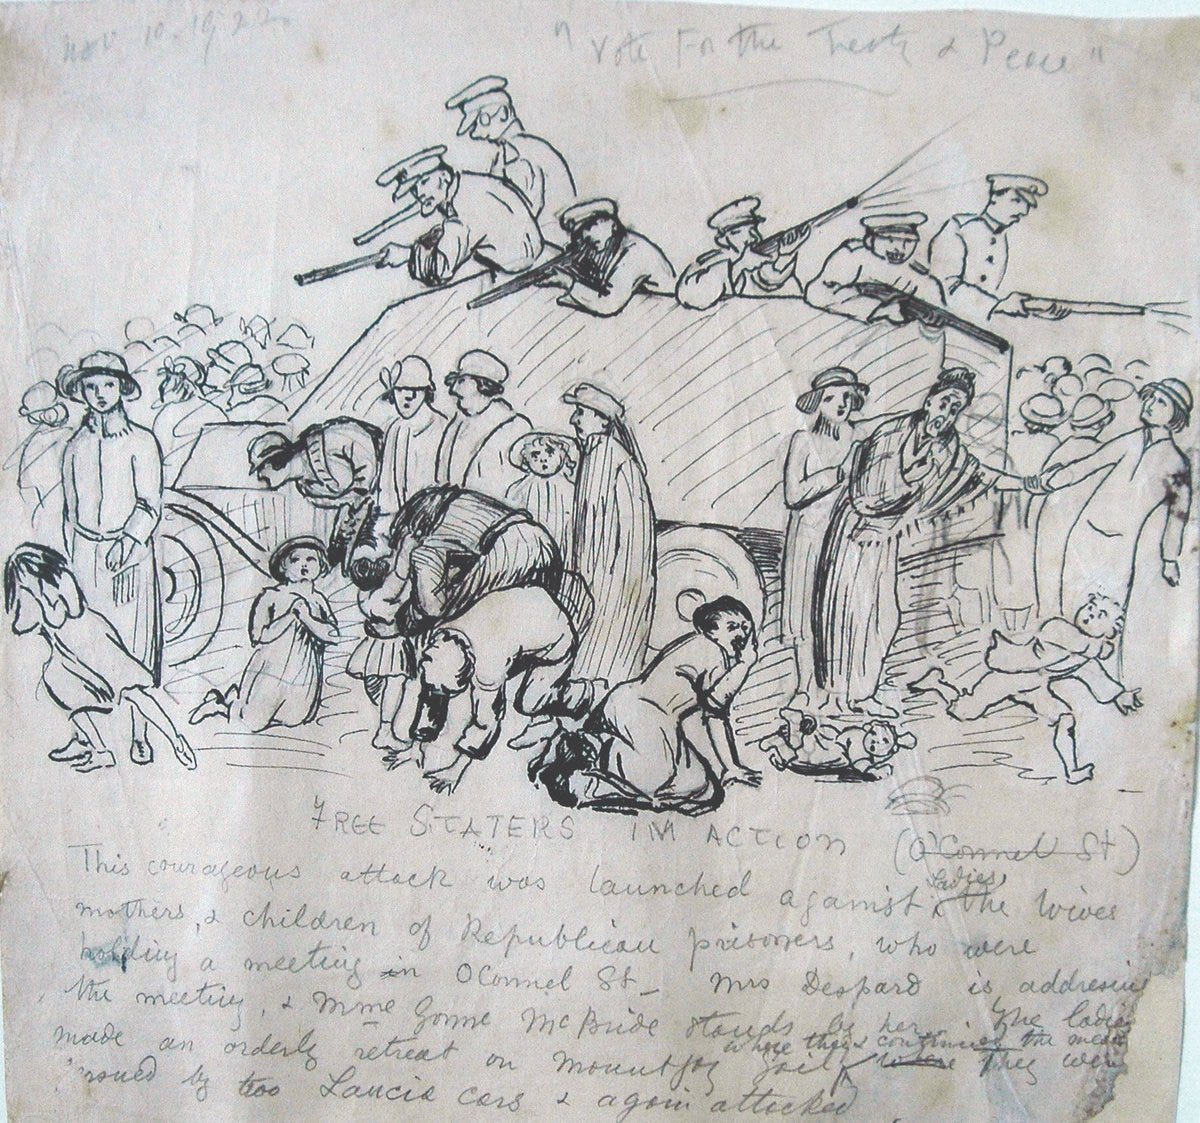 Nov 10. 1922.
"Vote For the Treaty & Peace"
FREE STATERS IN ACTION (O'Connel St)
Ladies,
This courageous attack was launched against the Wives
mothers, & children of Republican prisoners, who were
holding a meeting in O Connel St_ Mrs Despard is addressing
the meeting, & Mme Gonne McBride stands by her. The ladies
where they continued the meet
made an orderly retreat on Mountjoy Jail, where They were
by too Lancia cars & again attacked